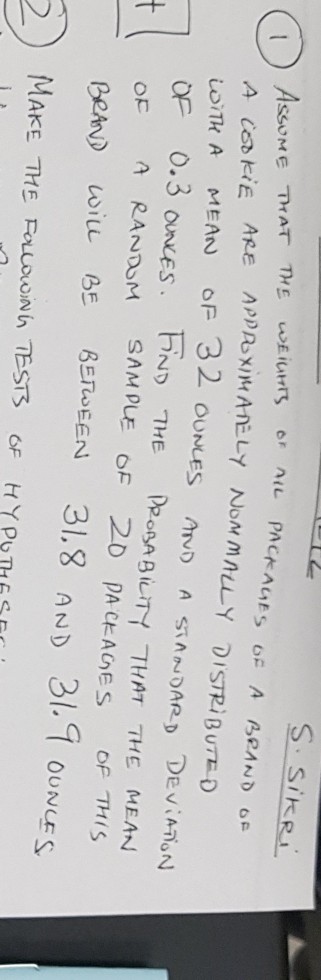 S. SIKRI
1 ASSUME THAT THE WEIGHTS OF ALL PACKAGES OF A BRAND OF
A COOKIE ARE APPROXIMATELY NORMALLY DISTRIBUTED
WITH A MEAN OF 32 OUNCES AND A STANDARD DEVIATION
OF 0.3 OUNCES. FIND THE PROBABILITY THAT THE MEAN
OF A RANDOM SAMPLE OF 20 PACKAGES OF THIS
BRAND WILL BE BETWEEN 31.8 AND 31.9 OUNCES.
2 MAKE THE FOLLOWING TESTS OF HYPOTHESES: